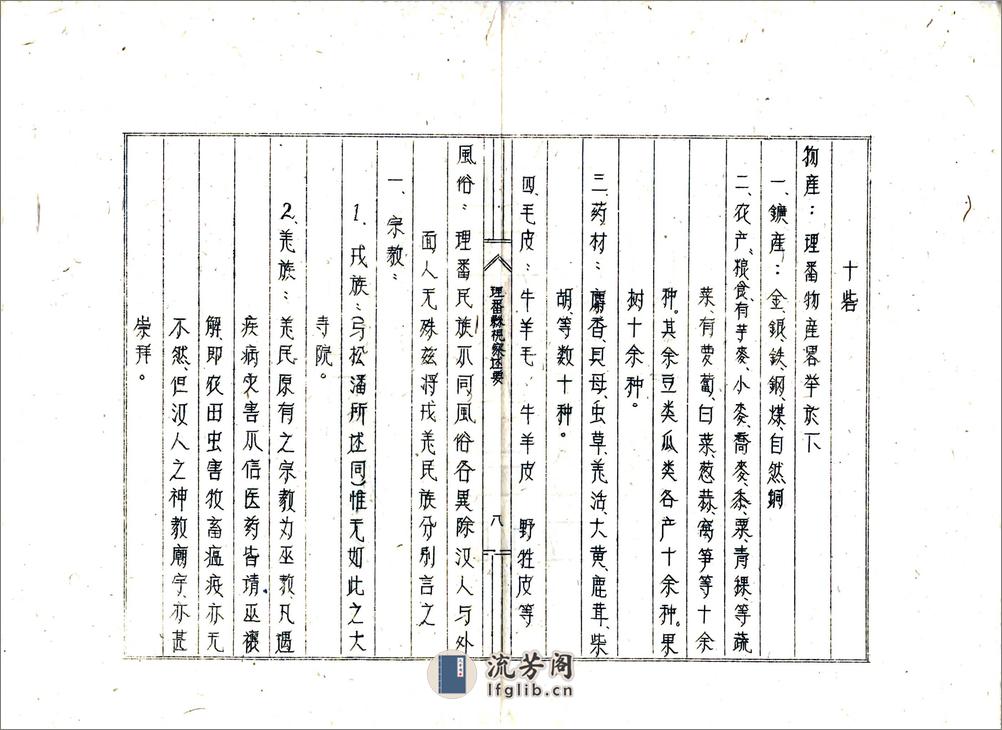 十砦
物産：理番物産畧举於下
一、鑛産：金、銀、鉄、鋼、煤、自然銅
二、农产：粮食、有芋麥、小麥、喬麥、黍、粟、青稞、等蔬
菜、有萝蔔、白菜、葱、蒜、窩笋等十余
种。其余豆类瓜类各产十余种。果
树十余种。
三、药材：麝香、貝母、虫草、羌活、大黄、鹿茸、柴
胡、等数十种。
四、毛皮：牛羊毛、牛羊皮 野牲皮等
理番縣視察述要
八
風俗：理番民族不同，風俗各異除汉人与外
面人无殊兹将戎羌民族分别言之
一、宗教：
1. 戎族：(与松潘所述同)惟无如此之大
寺院。
2. 羌族：羌民原有之宗教为巫教凡遇
疾病灾害不信医药皆请巫禳
解、即农田虫害牧畜瘟疫亦无
不然、但汉人之神教廟宇、亦甚
崇拜。
流芳阁
lfglib.cn